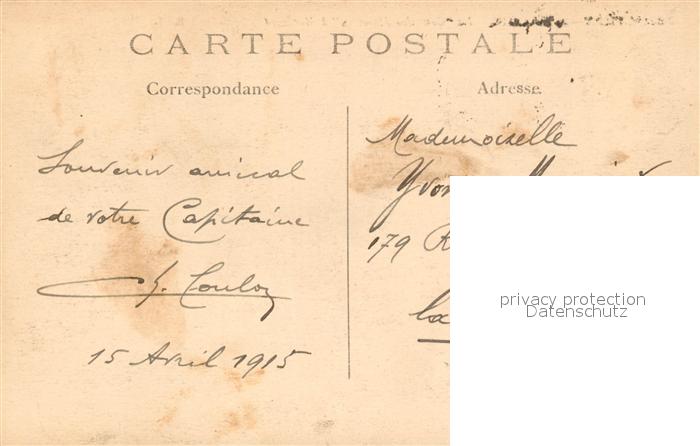 CARTE POSTALE
Correspondance
Adresse
Souvenir amical
de votre Capitaine
Ch. Couloz
15 Avril 1915
Mademoiselle
179
privacy protection
Datenschutz